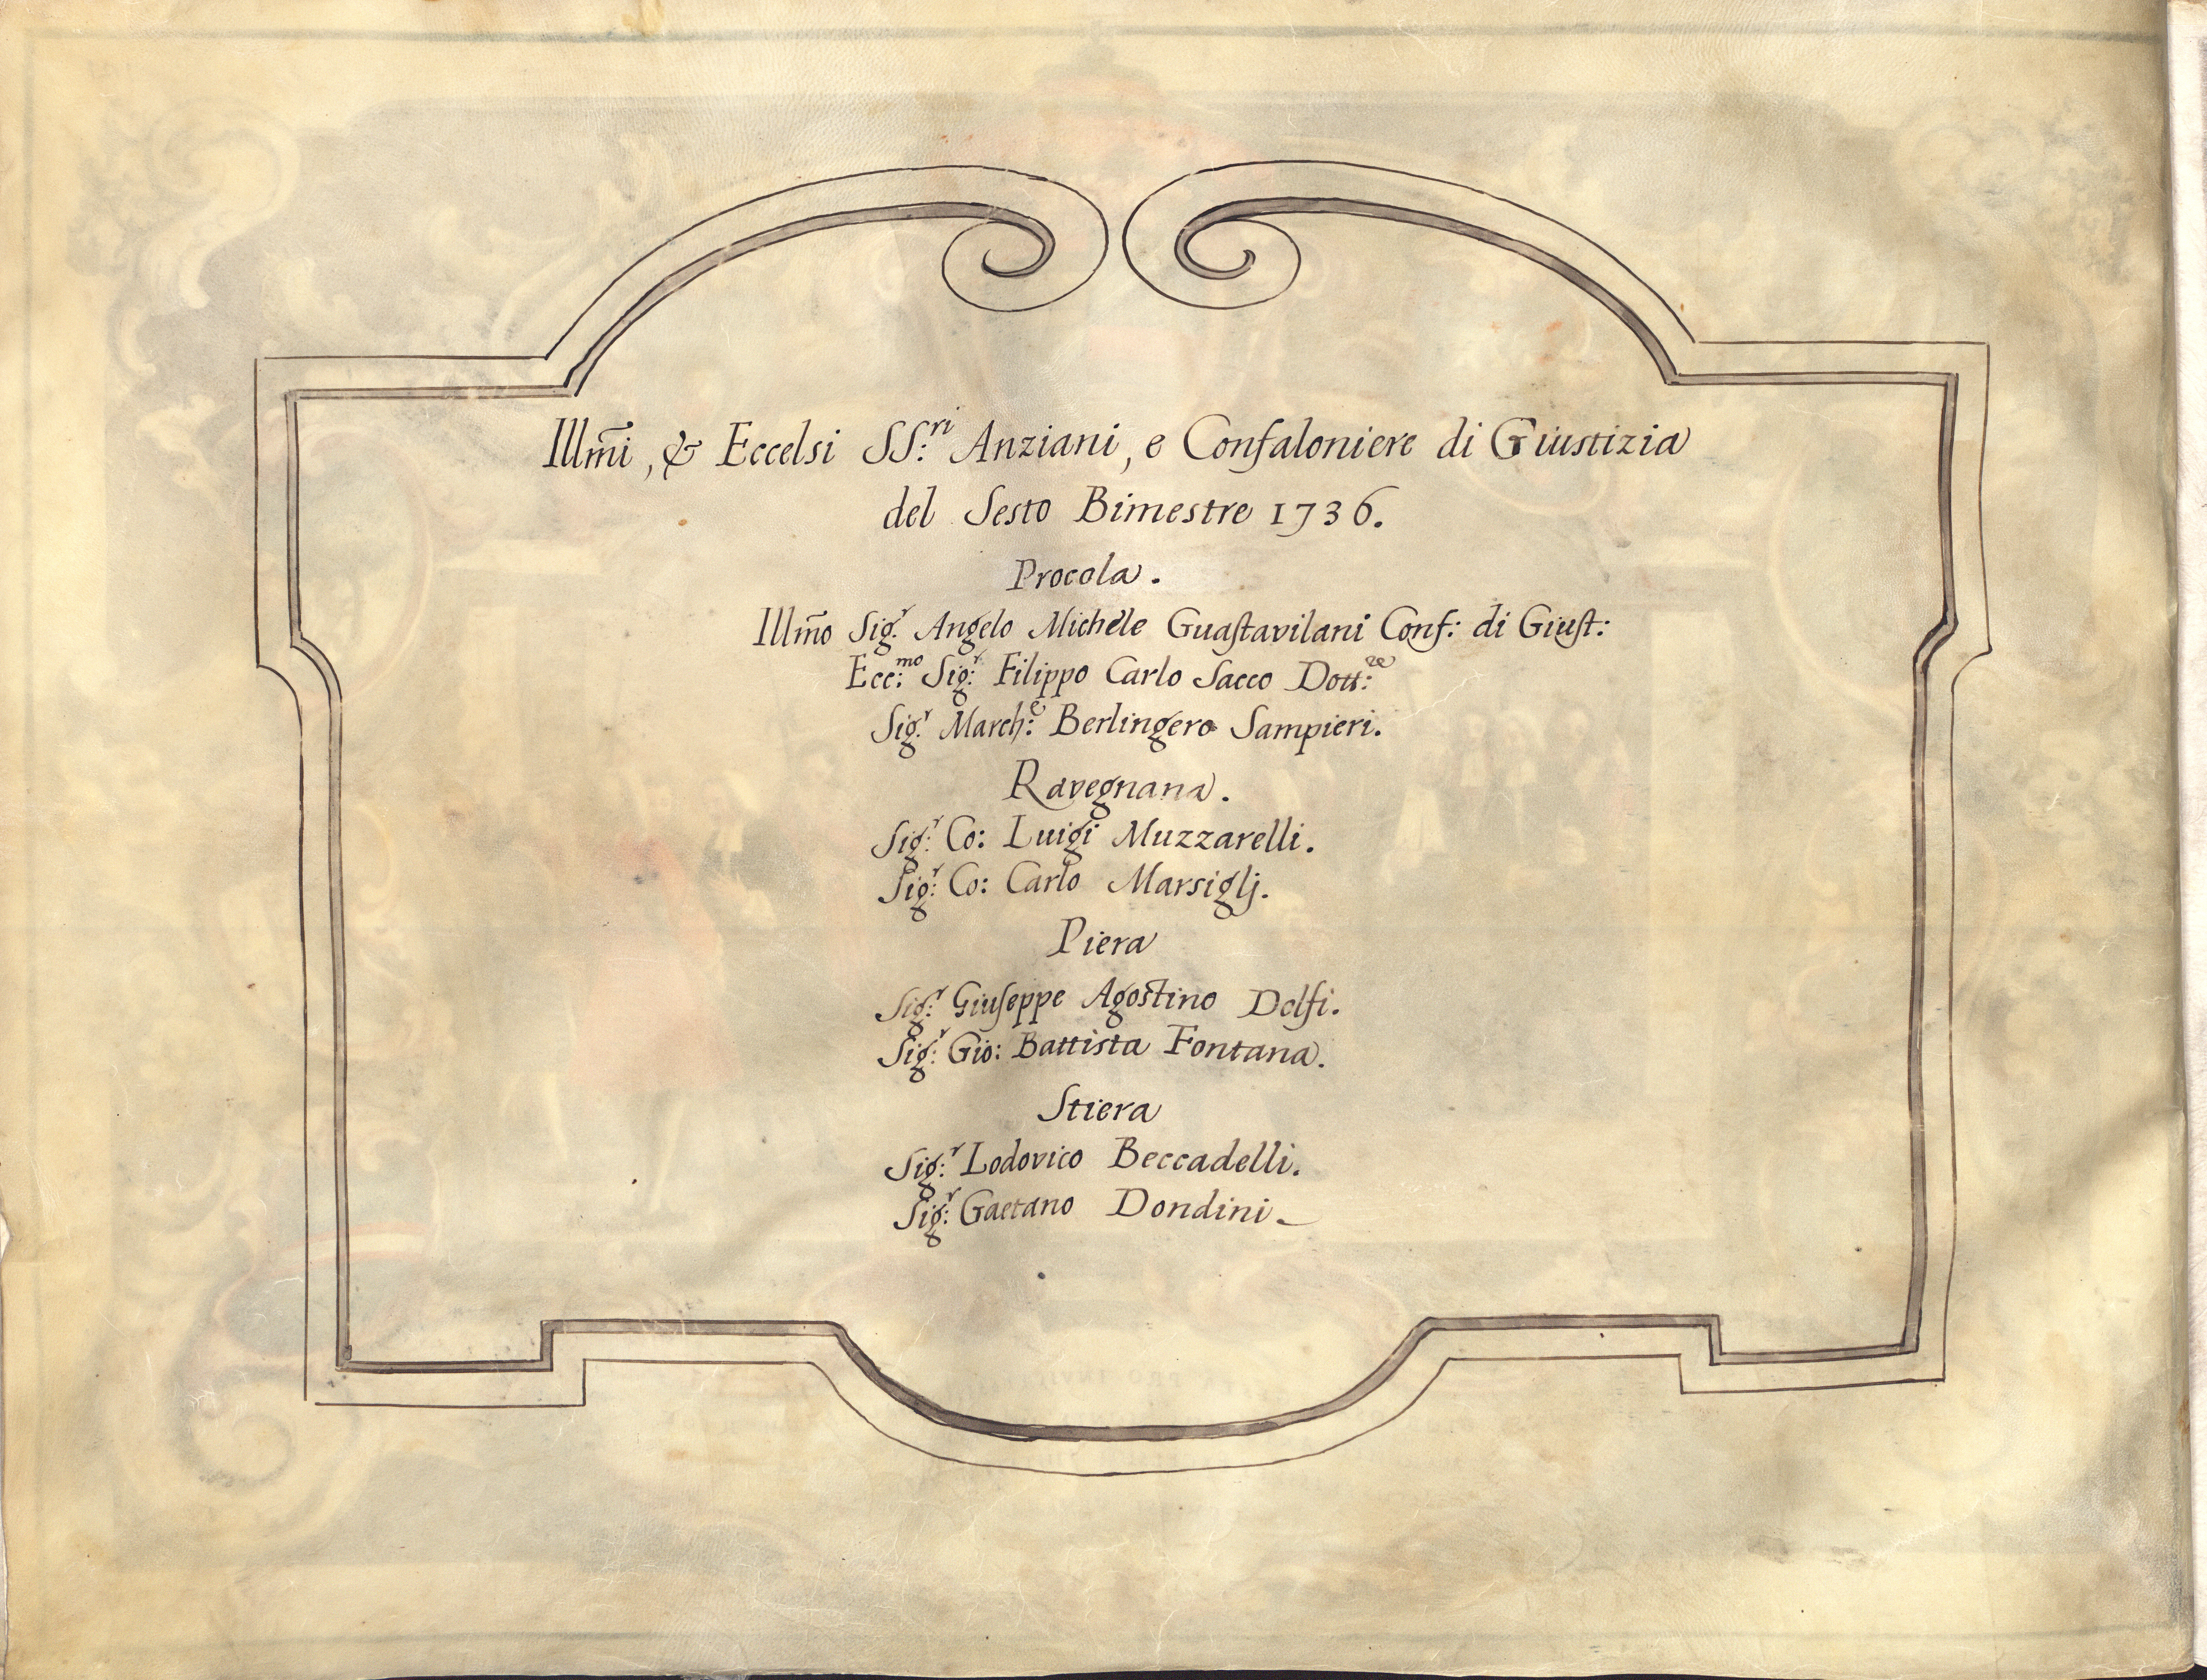 Illm̃i, & Eccelsi SS:ri Anziani, e Confaloniere di Giustizia
del Sesto Bimestre 1736.
Procola.
Illm̃o Sig:r Angelo Michele Guastavilani Conf: di Giust:
Ecc:mo Sig:r Filippo Carlo Sacco Dott:re
Sig:r March:e Berlingero Sampieri.
Ravegnana.
Sig:r Co: Luigi Muzzarelli.
Sig:r Co: Carlo Marsiglj.
Piera
Sig:r Giuseppe Agostino Delfi.
Sig:r Gio: Battista Fontana.
Stiera
Sig:r Lodovico Beccadelli.
Sig:r Gaetano Dondini